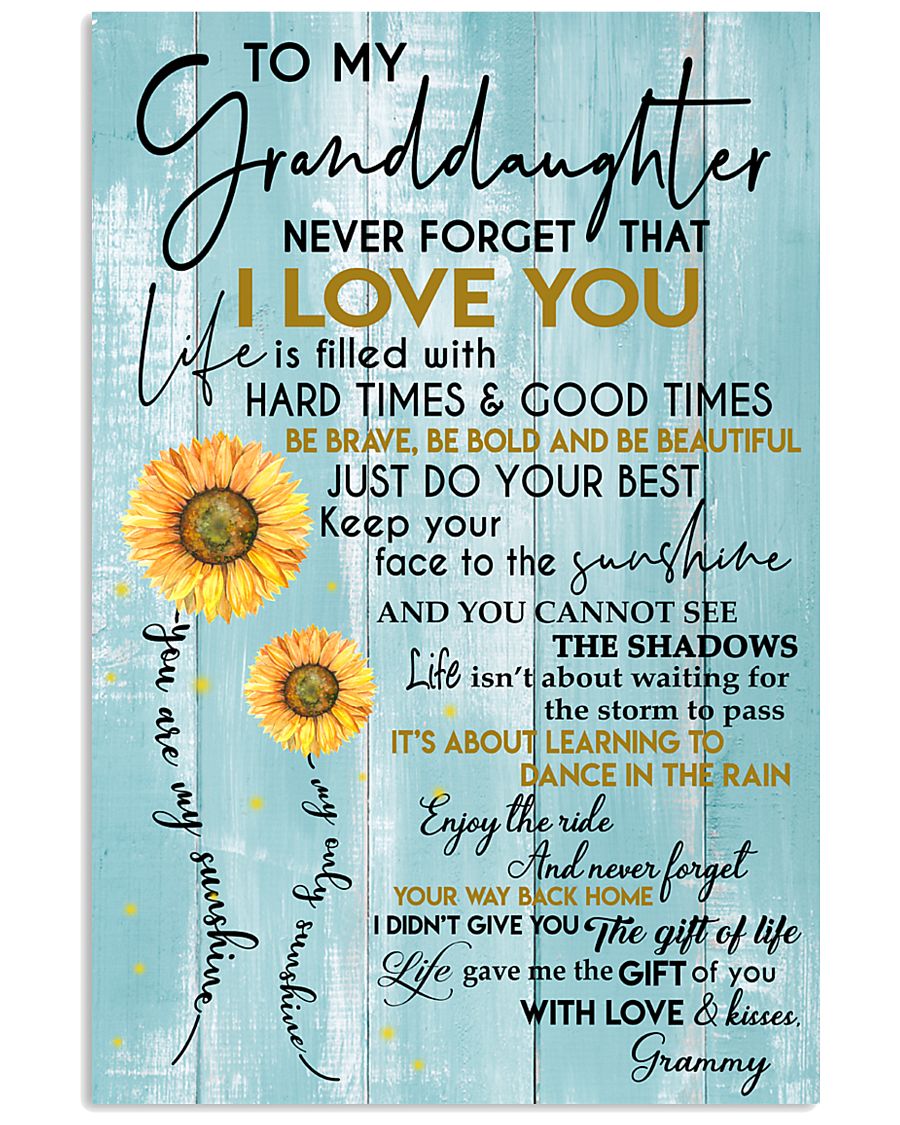 TO MY
Granddaughter
NEVER FORGET THAT
I LOVE YOU
Life is filled with
HARD TIMES & GOOD TIMES
BE BRAVE, BE BOLD AND BE BEAUTIFUL
JUST DO YOUR BEST
Keep your
face to the sunshine
AND YOU CANNOT SEE
THE SHADOWS
Life isn't about waiting for
the storm to pass
IT'S ABOUT LEARNING TO
DANCE IN THE RAIN
Enjoy the ride
And never forget
YOUR WAY BACK HOME
I DIDN'T GIVE YOU The gift of life
Life gave me the GIFT of you
WITH LOVE & kisses,
Grammy
you are my sunshine
my only sunshine